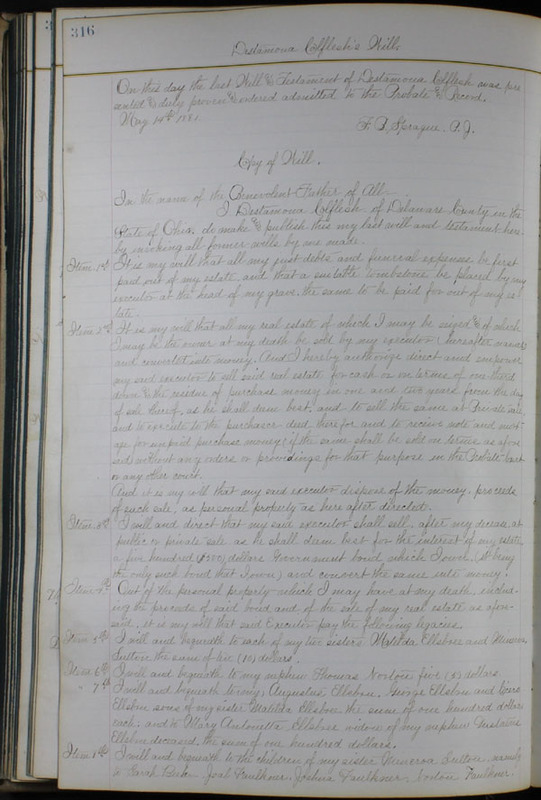 316
Destamona Cofflesh's Will.
On this day the last Will & Testament of Destamona Cofflesh was pre
sented & duly proven & ordered admitted to the Probate & Record.
May 14th 1881.
F. B. Sprague. P. J.
Copy of Will.
In the name of the Benevolent Father of All.
I Destamona Cofflesh of Delaware County in the
State of Ohio. do make & publish this my last will and testament here
by invoking all former wills by me made.
Item 1st It is my will that all my just debts and funeral expenses be first
paid out of my estate, and that a suitable tombstone be placed by my
executor at the head of my grave, the same to be paid for out of my es
tate.
Item 2nd It is my will that all my real estate of which I may be seized & of which
I may be the owner at my death be sold by my executor (hereafter named)
and converted into money. And I hereby authorize direct and empower
my said executor to sell said real estate for cash or on terms of one third
down & the residue of purchase money in one and two years from the day
of sale thereof, as he shall deem best, and to sell the same at Private sale
and to execute to the purchaser deed therefor and to receive note and mort
age for unpaid purchase money (if the same shall be sold on terms as afore
said) without any orders or proceedings for that purpose in the Probate Court
or any other court.
And it is my will that my said executor dispose of the money, proceeds
of such sale, as personal property as here after directed.
Item 3rd I will and direct that my said executor shall sell, after my decease at
public or private sale as he shall deem best for the interest of my estate
a five hundred ($500) dollars Government bond which I own (it being
the only such bond that I own) and convert the same into money.
Item 4th Out of the personal property which I may have at my death, includ-
ing the proceeds of said bond and of the sale of my real estate as afore-
said, it is my will that said Executor pay the following legacies.
Item 5th I will and bequeath to each of my two sisters Matilda Ellsbree and Minerva
Sutton the sum of ten (10) dollars.
Item 6th I will and bequeath to my nephew Thomas Norton five (5) dollars.
" 7th I will and bequeath to Augustus Ellsbree, George Ellsbree and
Ellsbree sons of my sister Matilda Ellsbree the sum of one hundred dollars
each: and to Mary Antonetta Ellsbree widow of my nephew Gustavus
Ellsbree deceased, the sum of one hundred dollars.
Item 8th I will and bequeath to the children of my sister Minerva Sutton, namely
to Sarah Joal Faulkner. Joshua Faulkner. Norton Faulkner.